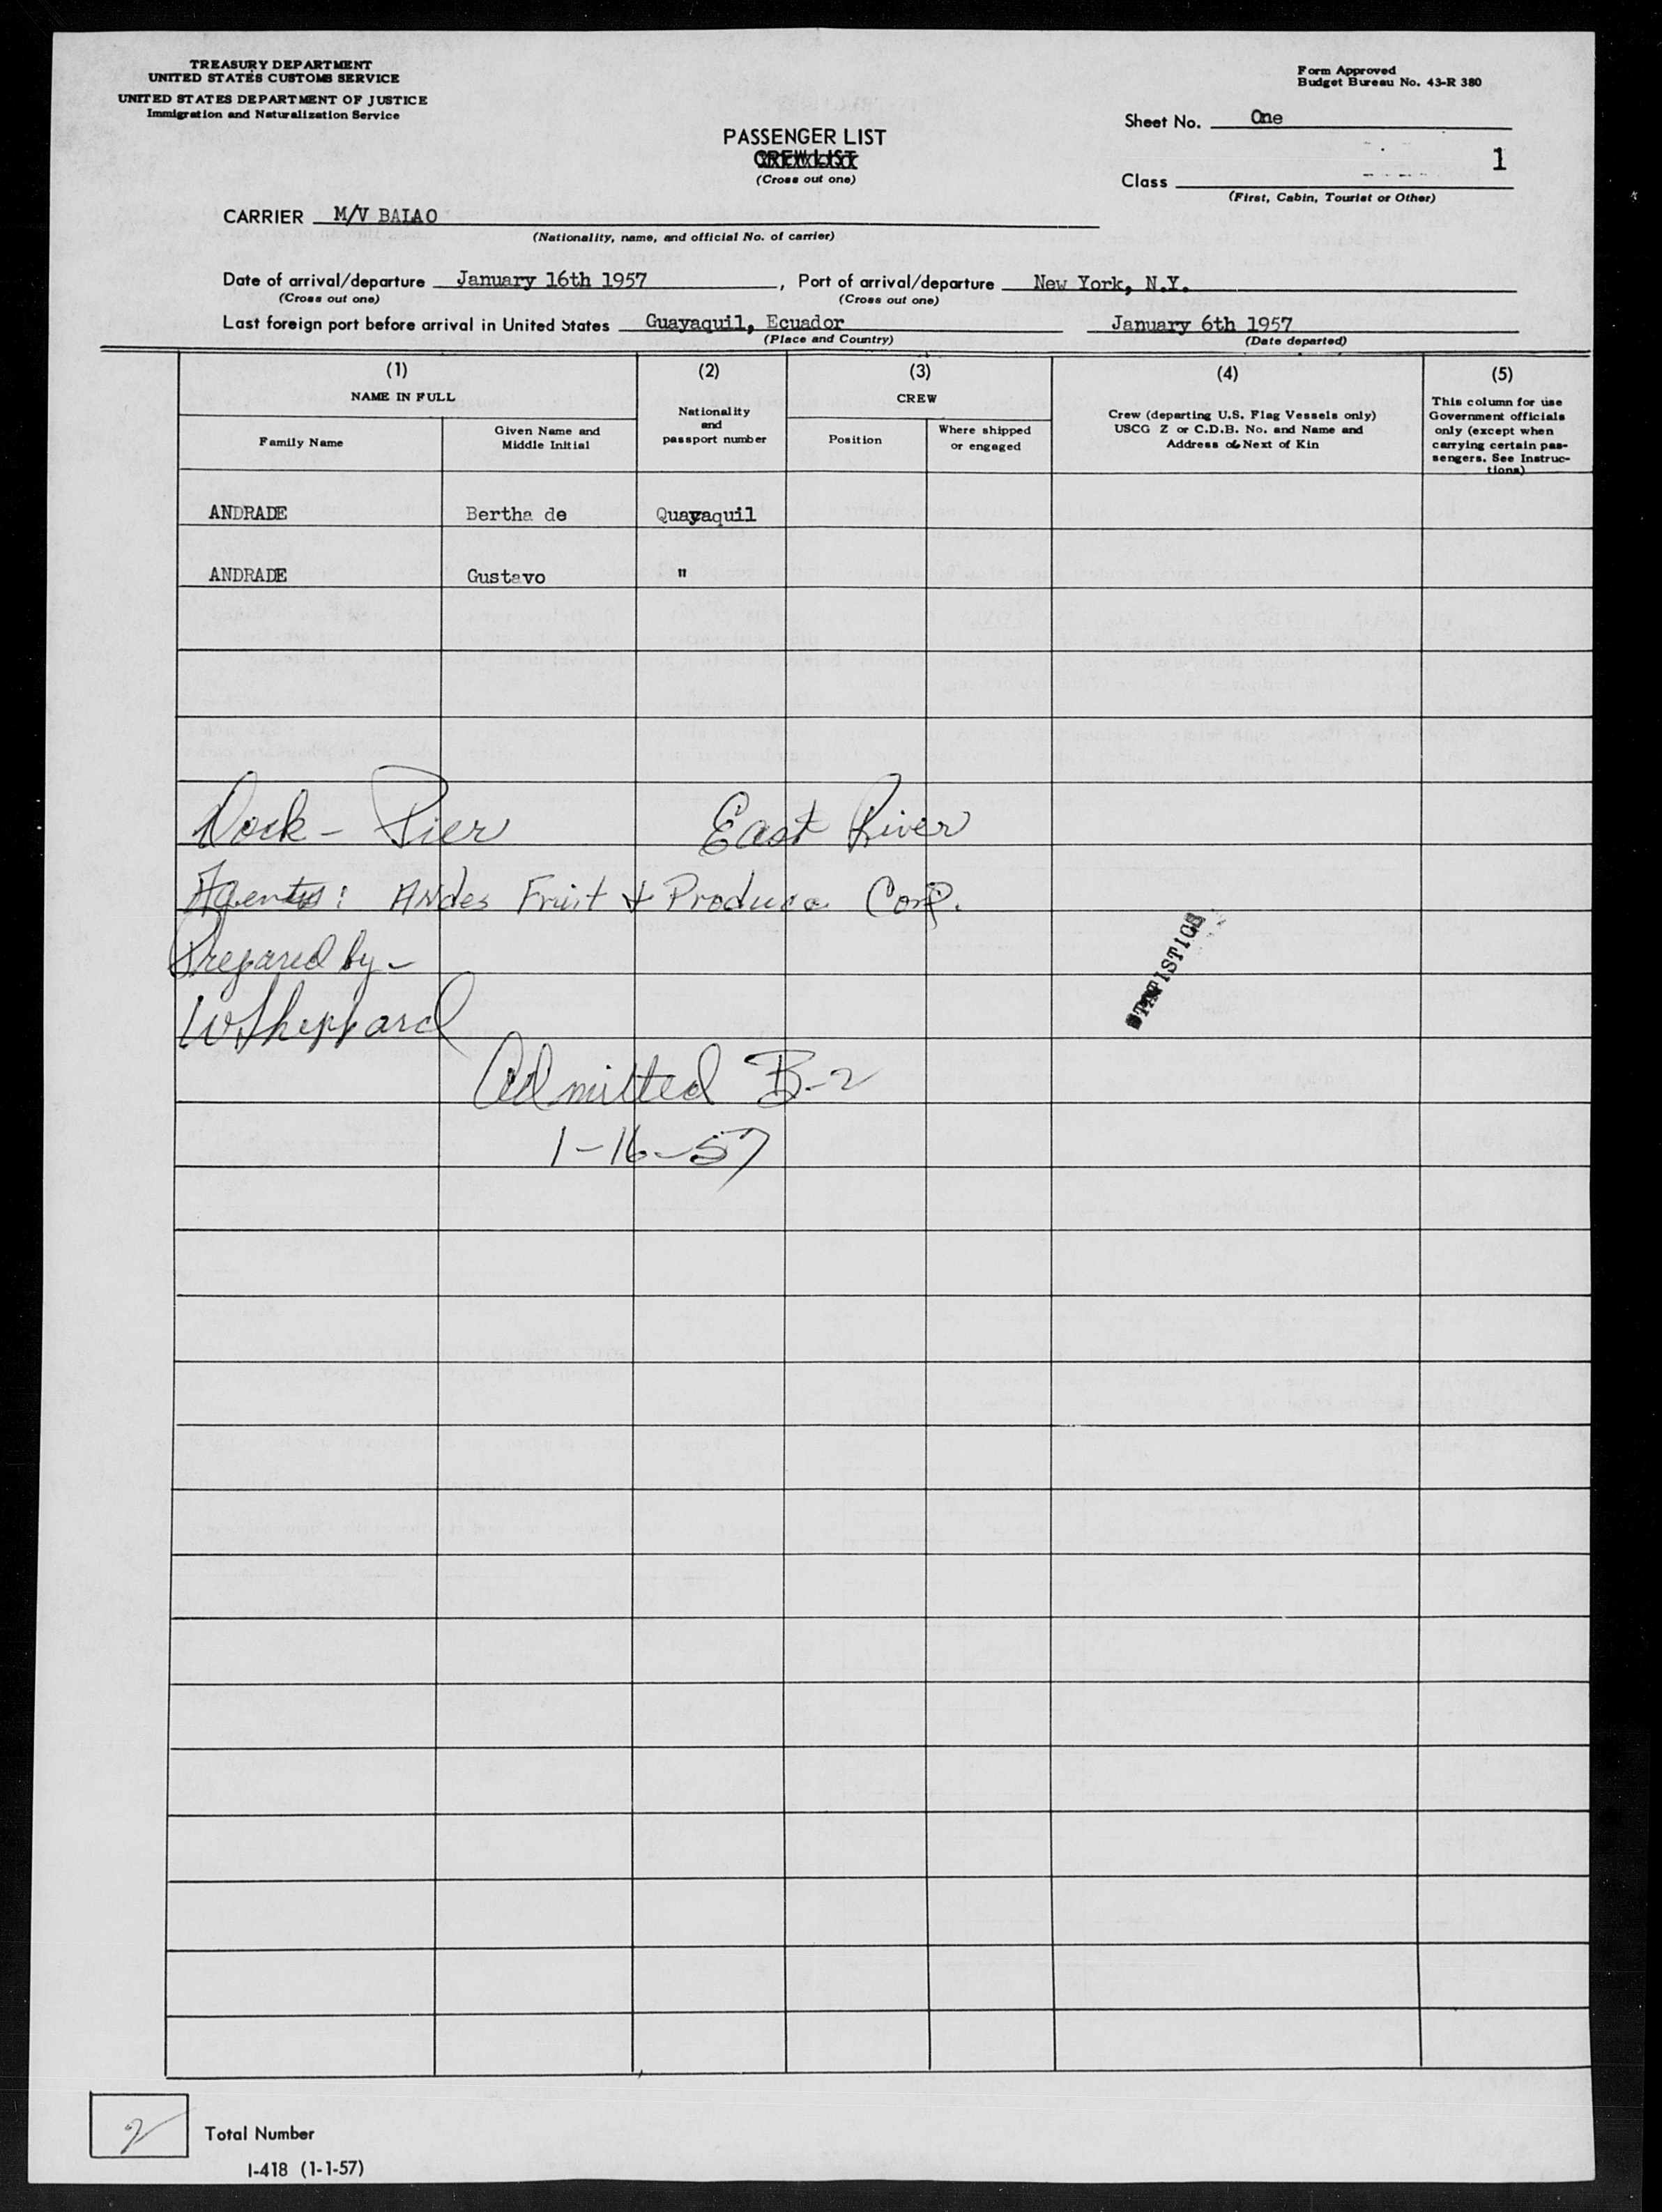 TREASURY DEPARTMENT
UNITED STATES CUSTOMS SERVICE
UNITED STATES DEPARTMENT OF JUSTICE
Immigration and Naturalization Service
Form Approved
Budget Bureau No. 43-R 380
PASSENGER LIST
CREW LIST
(Cross out one)
Sheet No. One
1
Class
(First, Cabin, Tourist or Other)
CARRIER M/V BALAO
(Nationality, name, and official No. of carrier)
Date of arrival/departure January 16th 1957, Port of arrival/departure New York, N.Y.
(Cross out one) (Cross out one)
Last foreign port before arrival in United States Guayaquil, Ecuador January 6th 1957
(Place and Country) (Date departed)
(1) (2) (3) (4) (5)
NAME IN FULL
Family Name
Given Name and
Middle Initial
Nationality
and
passport number
CREW
Position
Where shipped
or engaged
Crew (departing U.S. Flag Vessels only)
USCG Z or C.D.B. No. and Name and
Address of Next of Kin
This column for use
Government officials
only (except when
carrying certain pas-
sengers. See Instruc-
tions)
ANDRADE Bertha de Quayaquil
ANDRADE Gustavo "
Dock - Pier East River
Agents: Andes Fruit & Produce Corp.
Prepared by -
W Sheppard
STATISTICS
Admitted B-2
1-16-57
2
Total Number
I-418 (1-1-57)